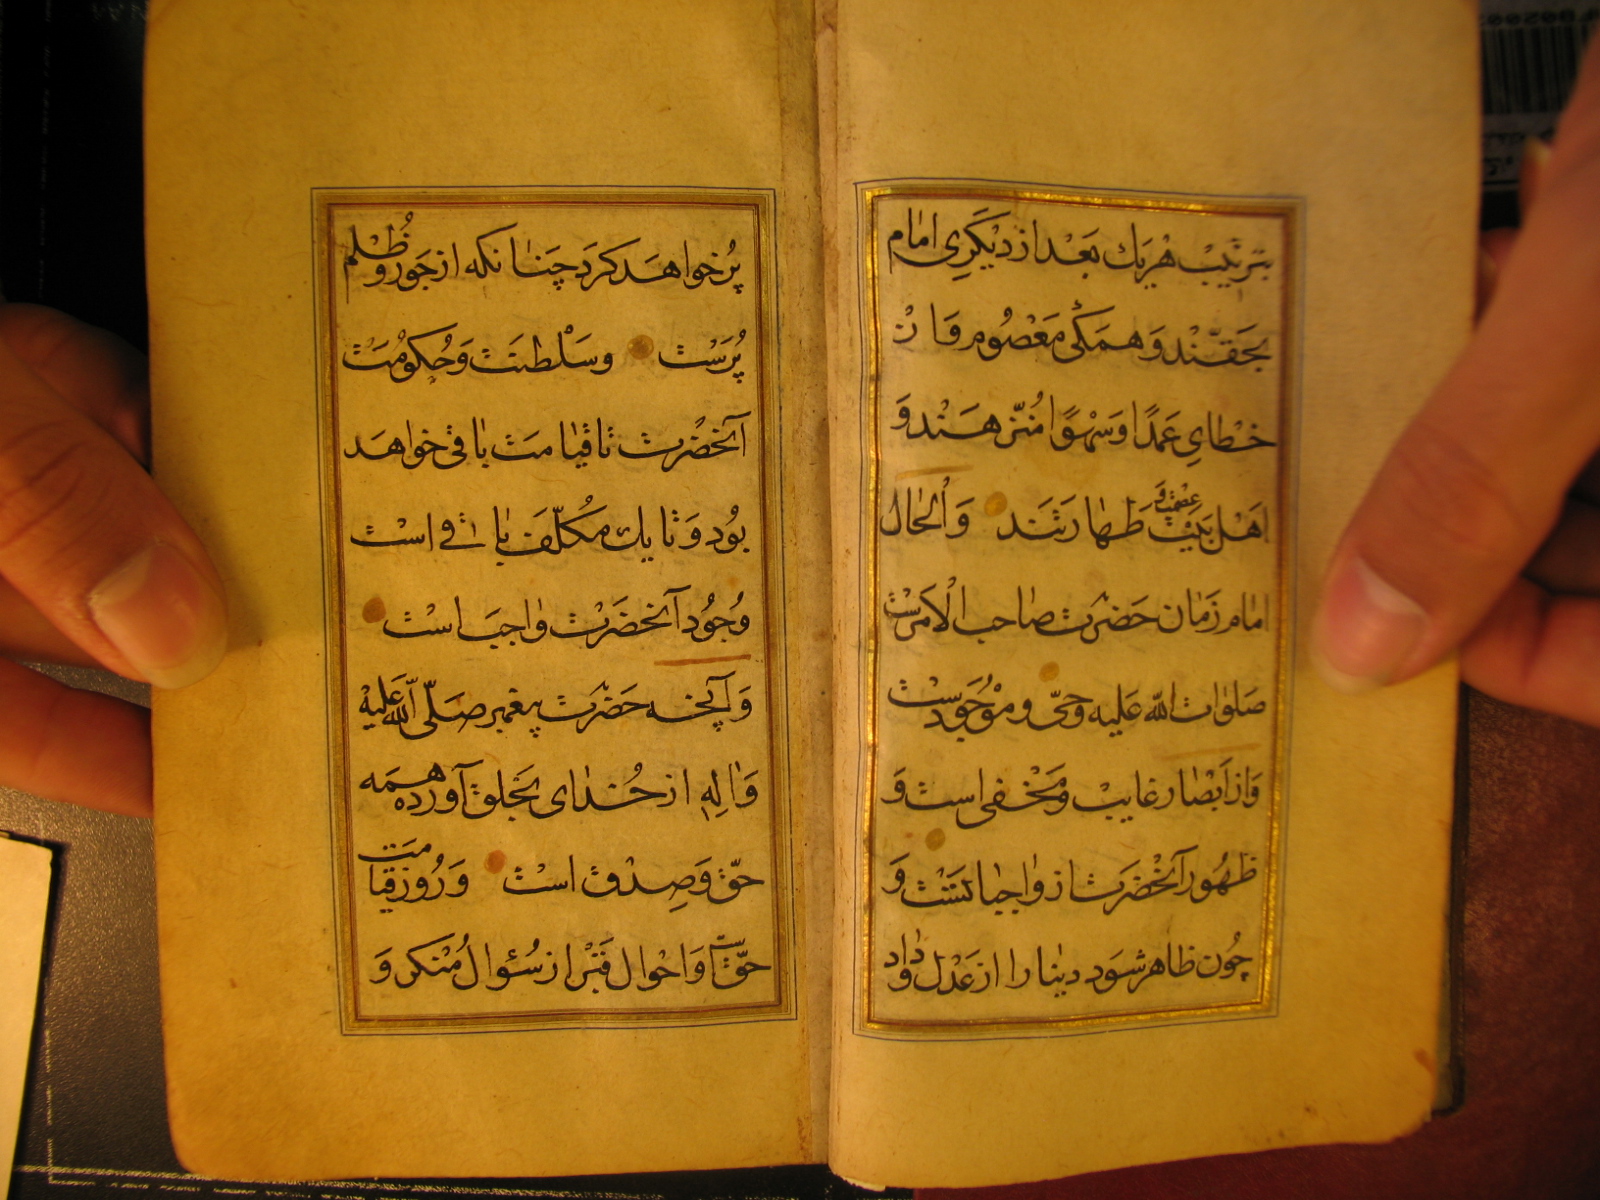 بترتیب هر یك بعد از دیکری امام
بحقند و همکی معصوم و از
خطای عمدًا و سهوًا منزهند و
اهل بیت عصمت و طهارتند والحال
امام زمان حضرت صاحب الامرست
صلوات الله علیه و حی و موجودست
و از ابصار غایب و مخفی است و
ظهور آنحضرت از واجباتست و
چون ظاهر شود دینا را از عدل و داد
پر خواهد کرد چنانکه از جور و ظلم
پرست و سلطنت و حکومت
آنحضرت تا قیامت باقی خواهد
بود و تا یك مکلف باقی است
وجود آنحضرت واجب است
و آنچه حضرت پیغمبر صلی الله علیه
واله از خدای بخلق آورده همه
حق و صدق است و روز قیامت
حقست و احوال قبر از سئوال منکر و